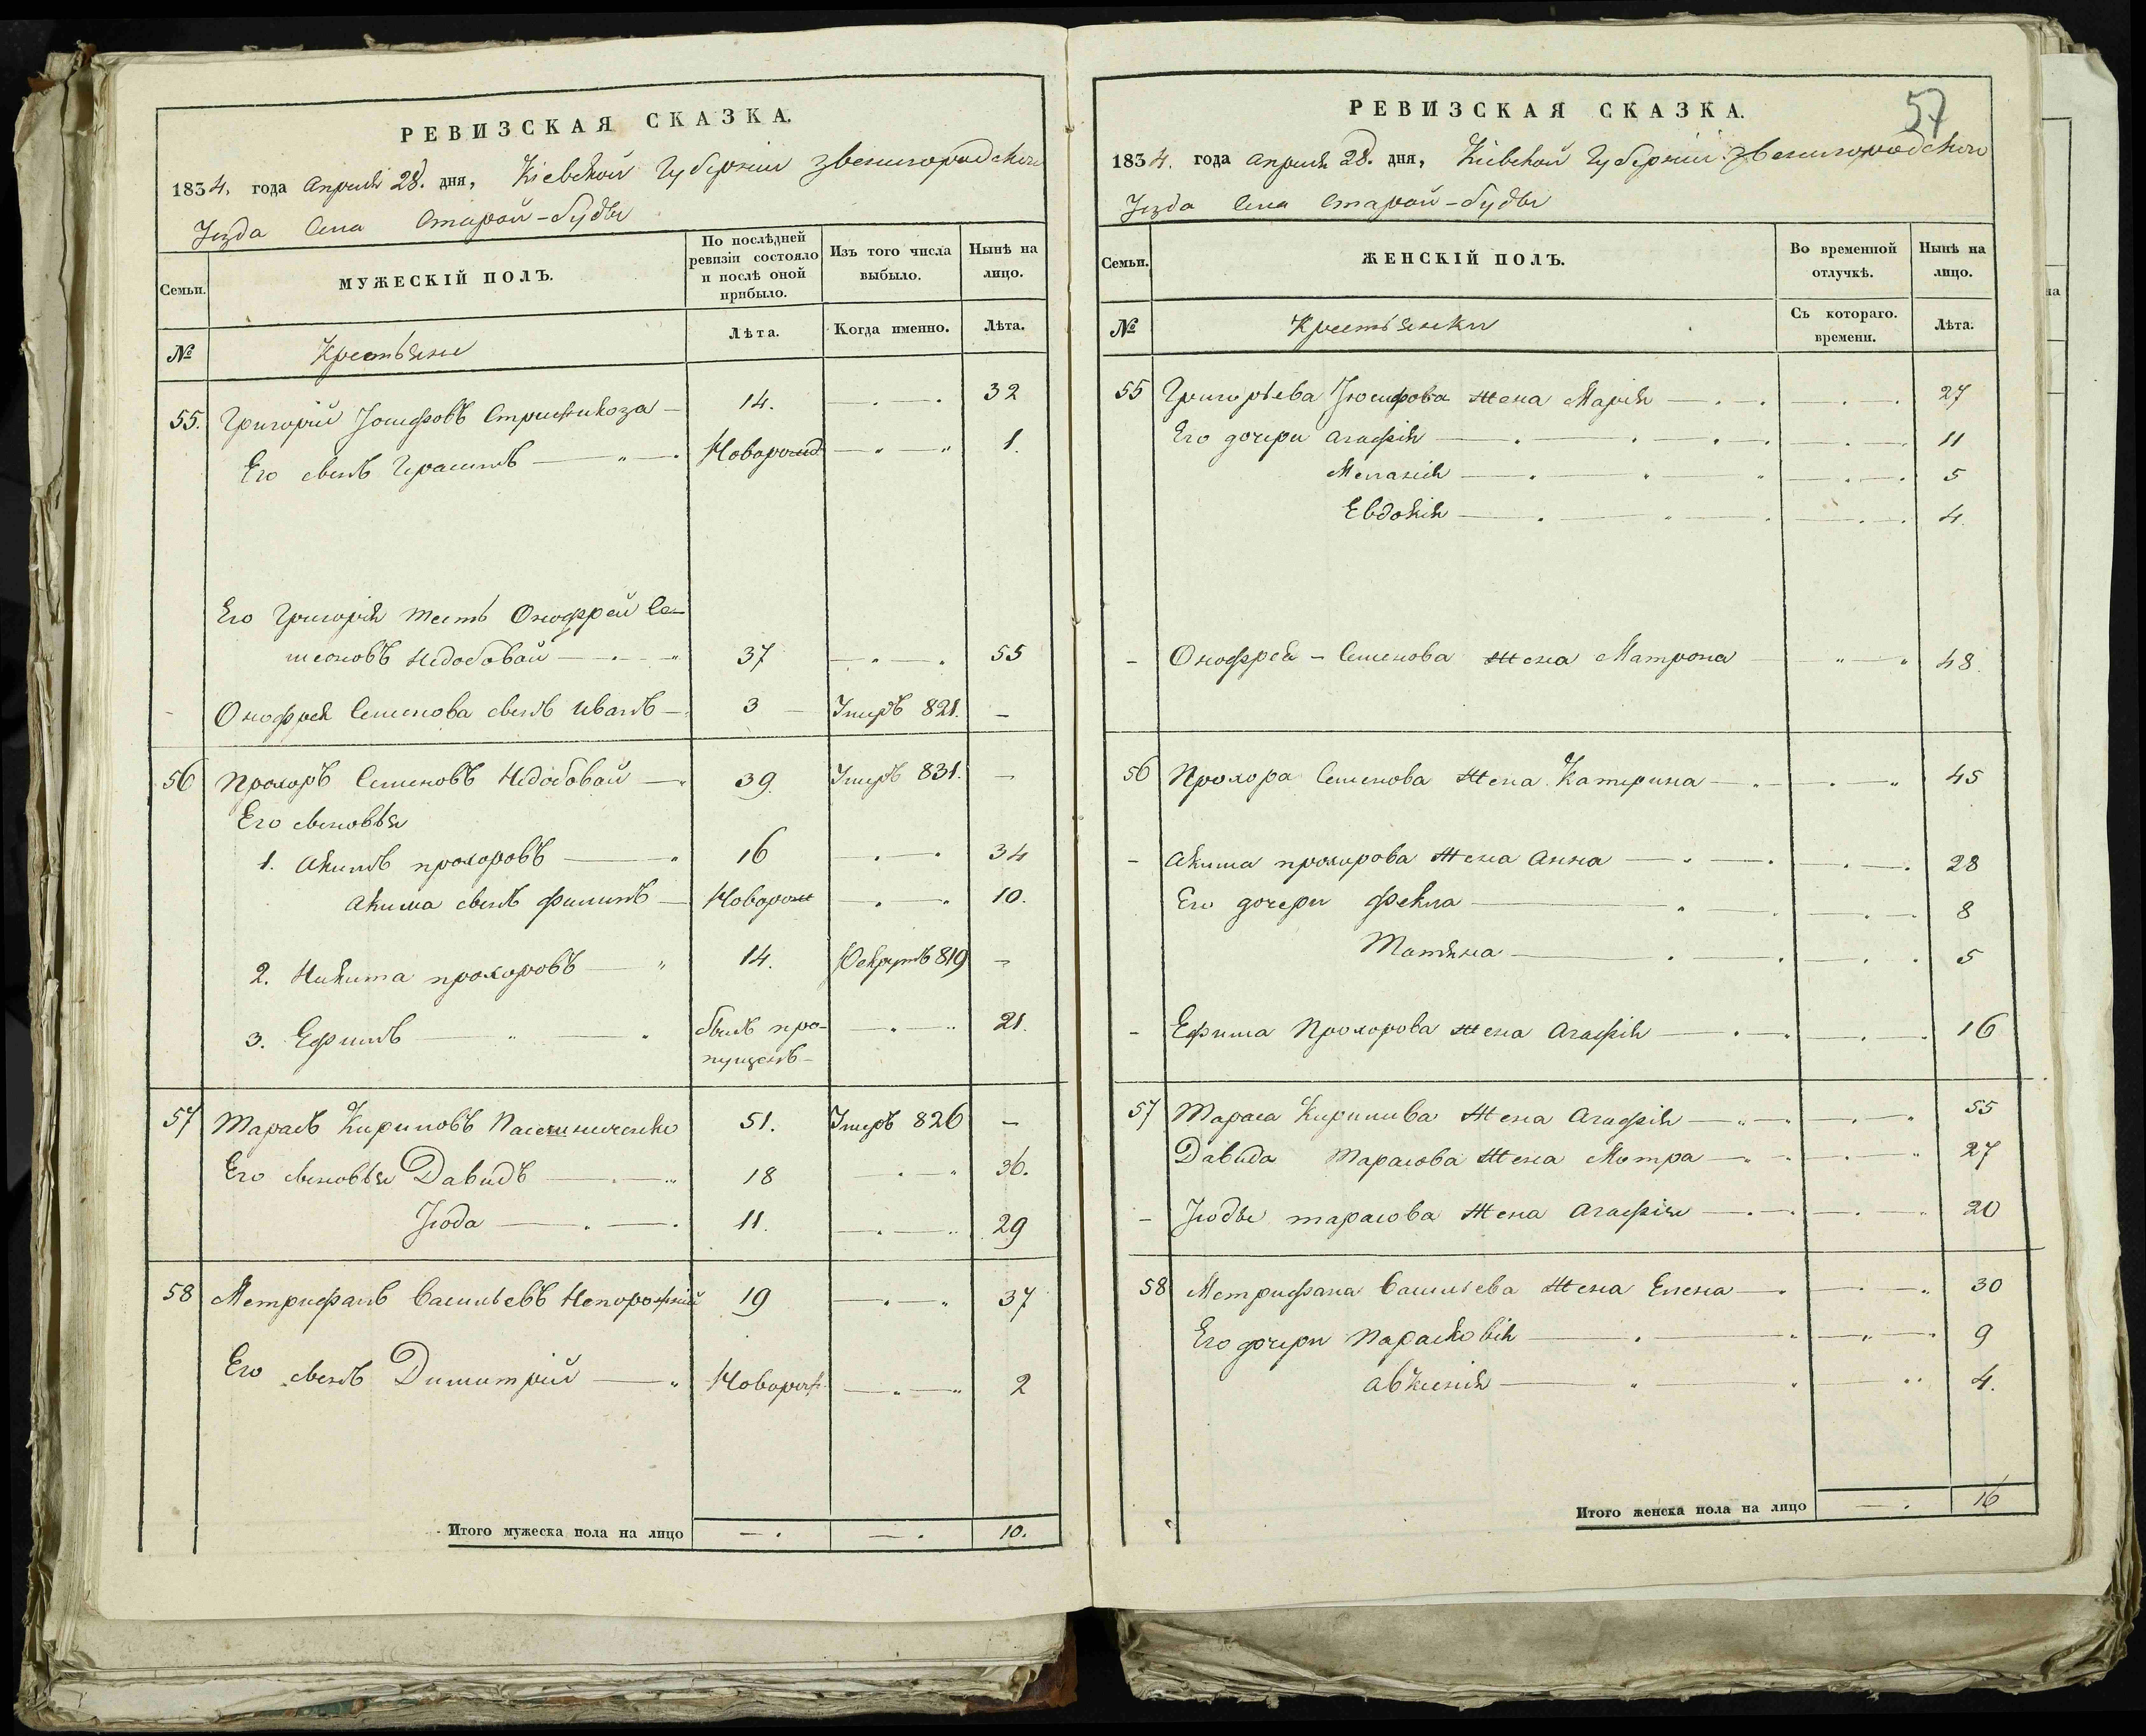 РЕВИЗСКАЯ СКАЗКА.
1834, года Апреля 28. дня, Кіевской Губерніи Звенигородскаго
Уезда Села Старой-Буды
Семьи.
МУЖЕСКІЙ ПОЛЪ.
По послѣдней ревизіи состояло и послѣ оной прибыло.
Изъ того числа выбыло.
Нынѣ на лицо.
№
Крестьяне
Лѣта.
Когда именно.
Лѣта.
55. Григорій Іосифовъ Стрижикоза 14. 32
Его сынъ Герасимъ Новорожд 1.
Его Григорія тесть Онофрей Се-
меновъ Недобовай 37 55
Онофрея Семенова сынъ Иванъ 3 Умеръ 821.
56 Прохоръ Семеновъ Недобовай 39. Умеръ 831.
Его сыновья
1. Акимъ Прохоровъ 16 34
Акима сынъ Филипъ Новорож 10.
2. Никита Прохоровъ 14. Рекрутъ 819
3. Ефимъ былъ про- 21.
пущенъ
57 Тарасъ Кириловъ Пасешниченко 51. Умеръ 826
Его сыновья Давидъ 18 36.
Іюда 11. 29
58 Метрифанъ Васильевъ Непорожній 19 37
Его сынъ Димитрій Новорож 2
Итого мужеска пола на лицо 10.
57
РЕВИЗСКАЯ СКАЗКА.
1834. года Апреля 28. дня, Кіевской Губерніи Звенигородскаго
Уезда Села Старой-Буды
Семьи.
ЖЕНСКІЙ ПОЛЪ.
Во временной отлучкѣ.
Нынѣ на лицо.
№
Крестьянки
Съ котораго. времени.
Лѣта.
55 Григорьева Іосифова жена Марія 27
Его дочери Агафія 11
Меланія 5
Евдокія 4.
Онофрея Семенова жена Матрона 48.
56 Прохора Семенова жена Катерина 45
Акима Прохорова жена Анна 28
Его дочери Фекла 8
Татяна 5
Ефима Прохорова жена Агафія 16
57 Тараса Кирилива жена Агафія 55
Давида Тарасова жена Мотра 27
Іюды Тарасова жена Агафія 20
58 Метрифана Васильева жена Елена 30
Его дочери Парасковія 9
Авксенія 4.
Итого женска пола на лицо 16